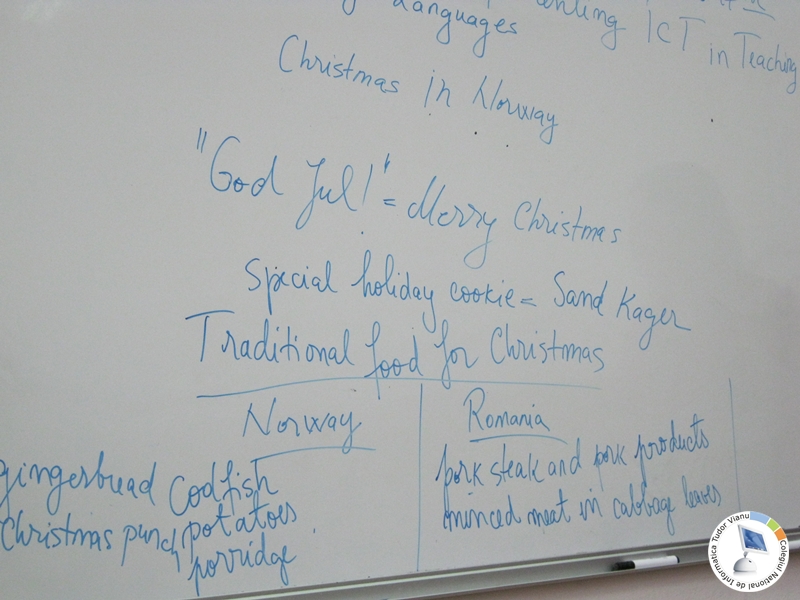 Languages
ICT in Teaching
Christmas in Norway
"God Jul!" = Merry Christmas
Special holiday cookie = Sand Kager
Traditional food for Christmas
Norway
Romania
gingerbread codfish
Christmas punch potatoes
porridge
pork steak and pork products
minced meat in cabbage leaves
Colegiul National de Informatica Tudor Vianu